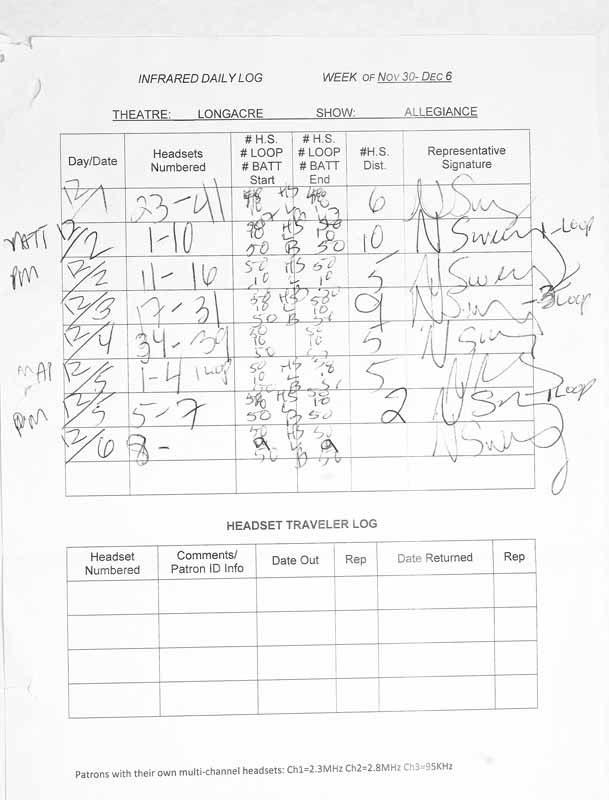 INFRARED DAILY LOG WEEK OF NOV 30- DEC 6
THEATRE: LONGACRE SHOW: ALLEGIANCE
Day/Date Headsets Numbered # H.S. # LOOP # BATT Start # H.S. # LOOP # BATT End #H.S. Dist. Representative Signature
12/1 23-41 HS L 6
MATT 12/2 1-10 50 B 50 10 N Sweeny 1-LOOP
PM 12/2 11-16 50 HS 50 10 L 10 5 N Sweeny
12/3 17-31 50 HS 50 10 10 50 B 9 3 Loop
12/4 34-39 50 50 10 10 50 5
MAT 12/5 1-4 1 Loop 50 HS 10 10 5
PM 12/5 5-7 50 HS 50 10 10 50 B 50 2 1 LOOP
12/6 8- 50 HS 50 9 9 50 B 50
HEADSET TRAVELER LOG
Headset Numbered Comments/ Patron ID Info Date Out Rep Date Returned Rep
Patrons with their own multi-channel headsets: Ch1=2.3MHz Ch2=2.8MHz Ch3=95KHz